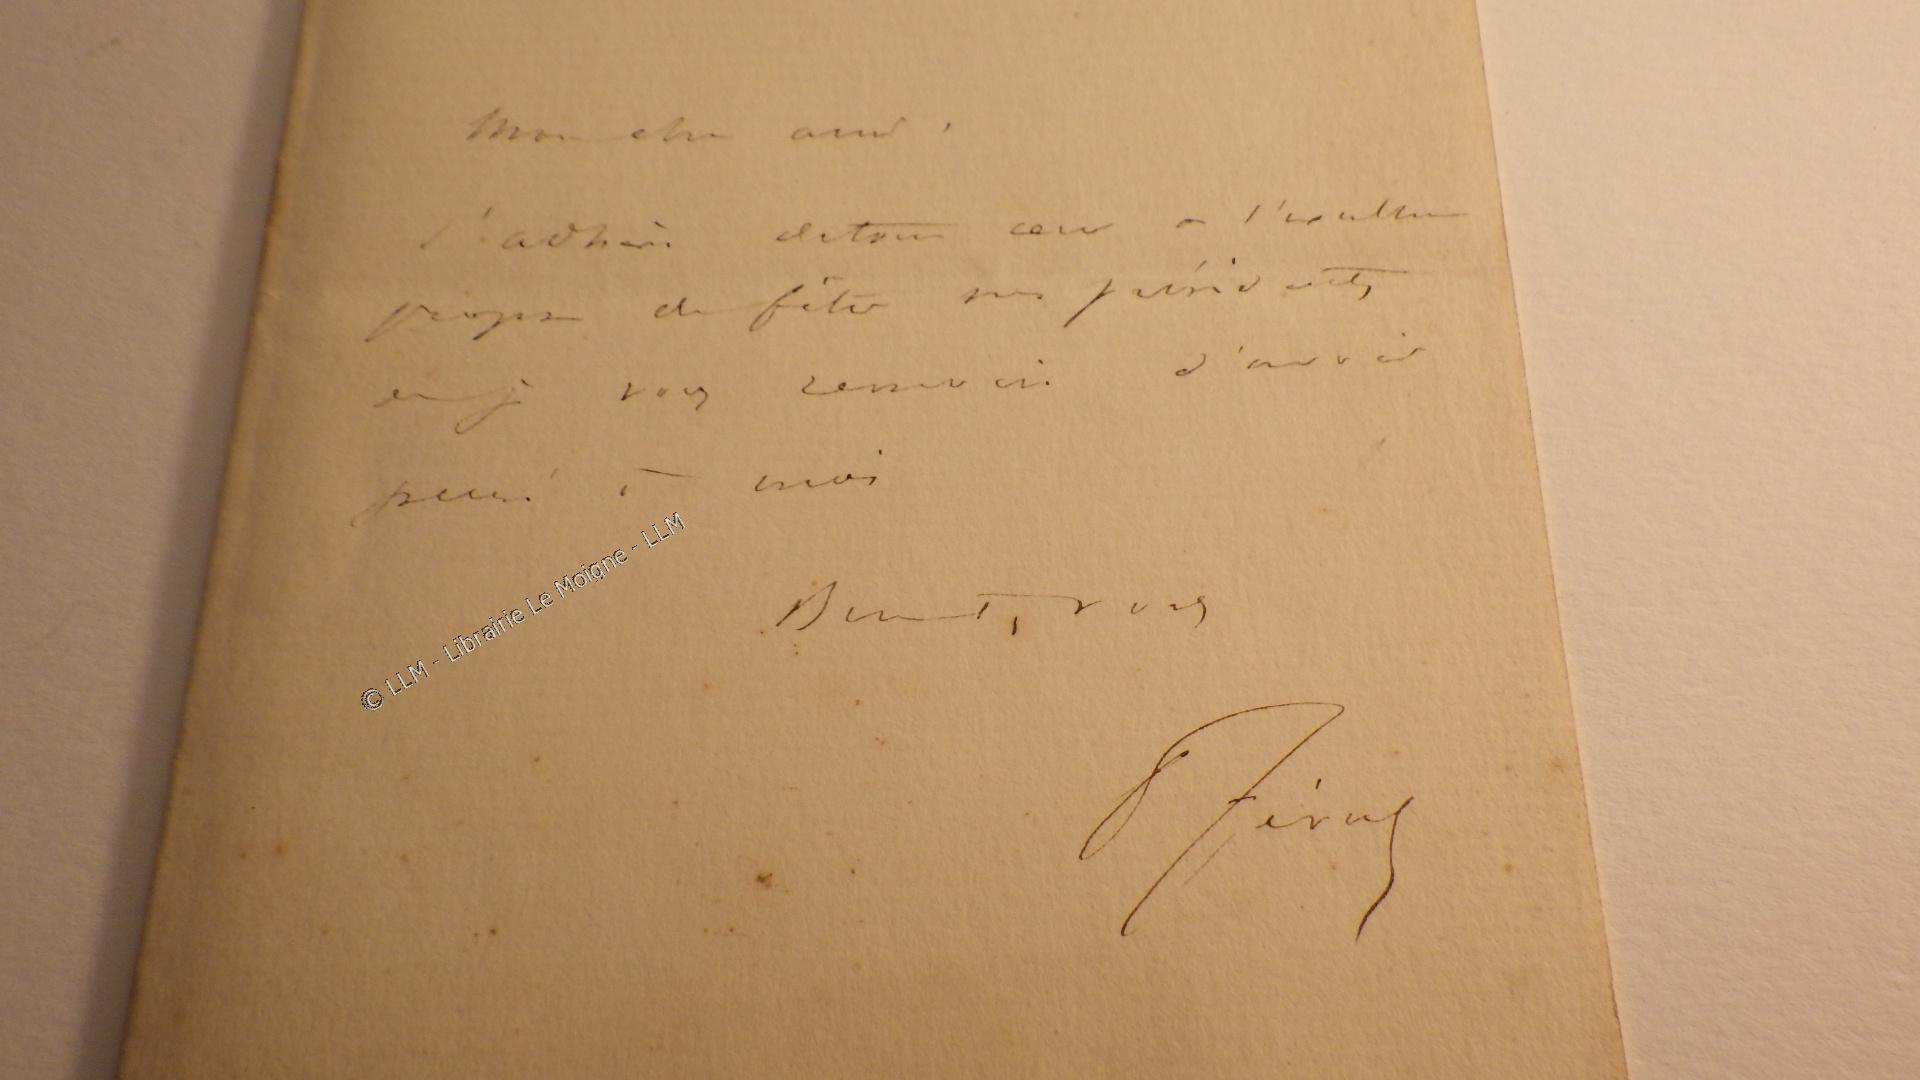 Mon cher ami,
J'adhère de tout cœur a l'excellente
propos de fêter nos présidents
en je vous remercie d'avoir
pensé à moi
Bient, vous
© LLM - Librairie Le Moigne - LLM